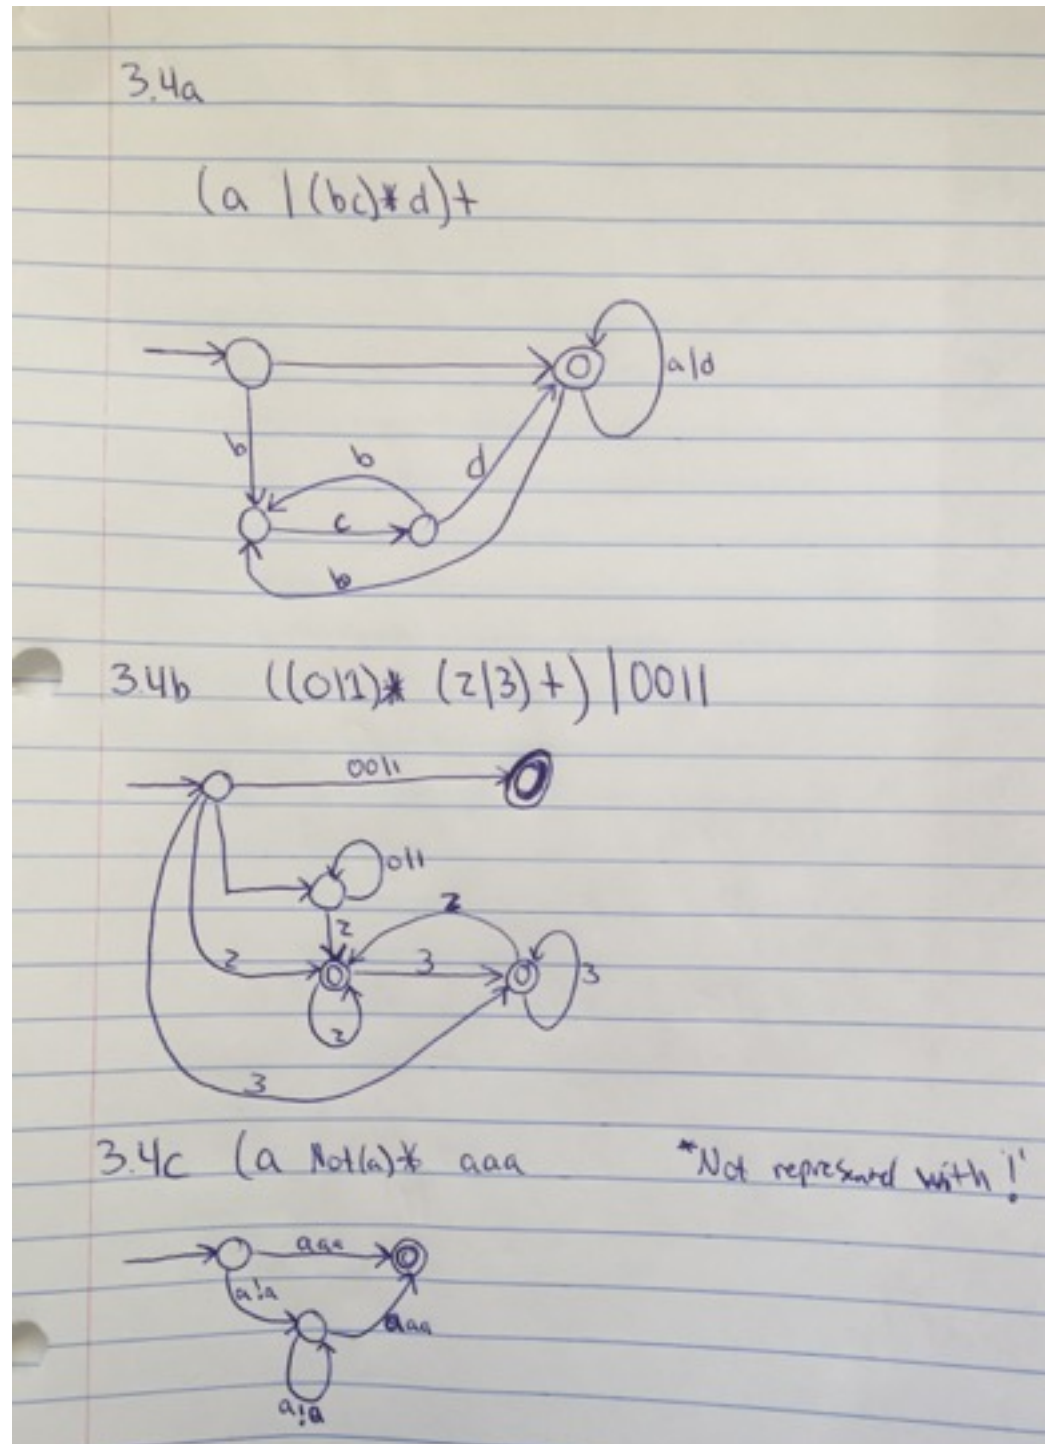 3.4a
(a | (bc)* d)+
a|d
b
b
d
c
b
3.4b ((0|1)* (2|3)+) | 0011
0011
0|1
2
2
2
3
3
2
3
3.4c (a Not(a)* aaa *Not represented with '!'
aaa
a!a
aaa
a!a